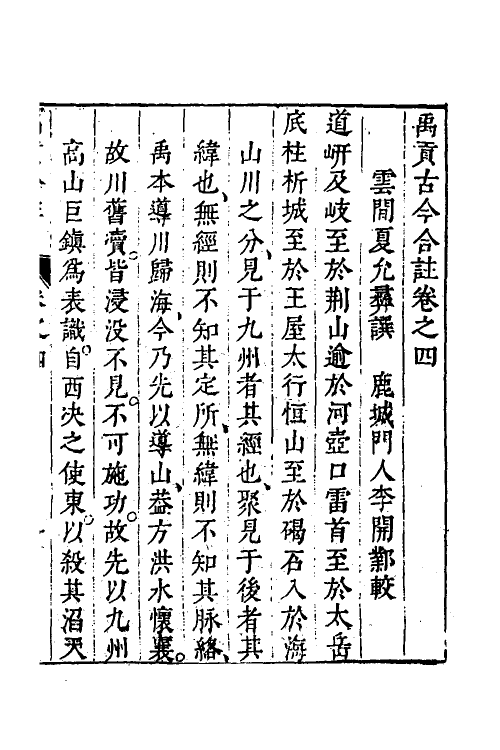 禹貢古今合註卷之四
雲間夏允彝譔　鹿城門人李開鄴較
道岍及岐至於荆山逾於河壺口雷首至於太岳
底柱析城至於王屋太行恒山至於碣石入於海
山川之分、見于九州者其經也、聚見于後者其
緯也、無經則不知其定所、無緯則不知其脉絡、
禹本導川歸海、今乃先以導山、葢方洪水懷襄。
故川舊瀆。皆浸没不見。不可施功。故先以九州
高山巨鎮爲表識。自西决之使東。以殺其滔天